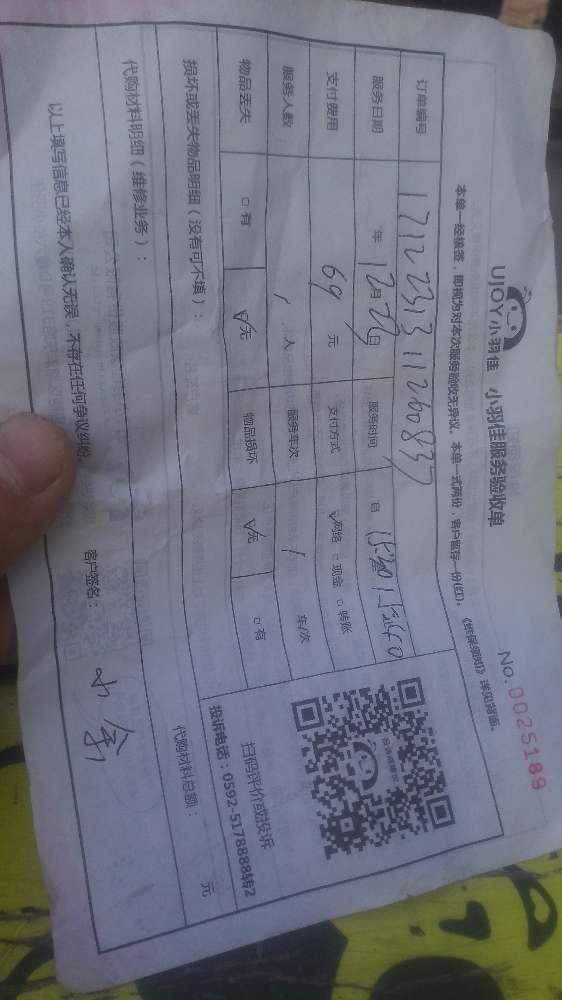 UJOY小羽佳 小羽佳服务验收单
No.0025189
本单一经接签,即视为对本次服务验收无异议。本单一式两份,客户留存一份(红)。《维保须知》详见背面。
订单编号
服务日期 年 12月29日 服务时间 自
支付费用 69 元 支付方式 网络 □现金 □转账
服务人数: 1 人 服务车次 1 车/次
物品丢失 □有 ☑无 物品损坏 ☑无 □有
扫码评价或投诉
投诉电话:0592-5178888转2
损坏或丢失物品明细(没有可不填):
代购材料明细(维修业务): 代购材料总额: 元
以上填写信息已经本人确认无误,不存在任何争议纠纷。 客户签名: